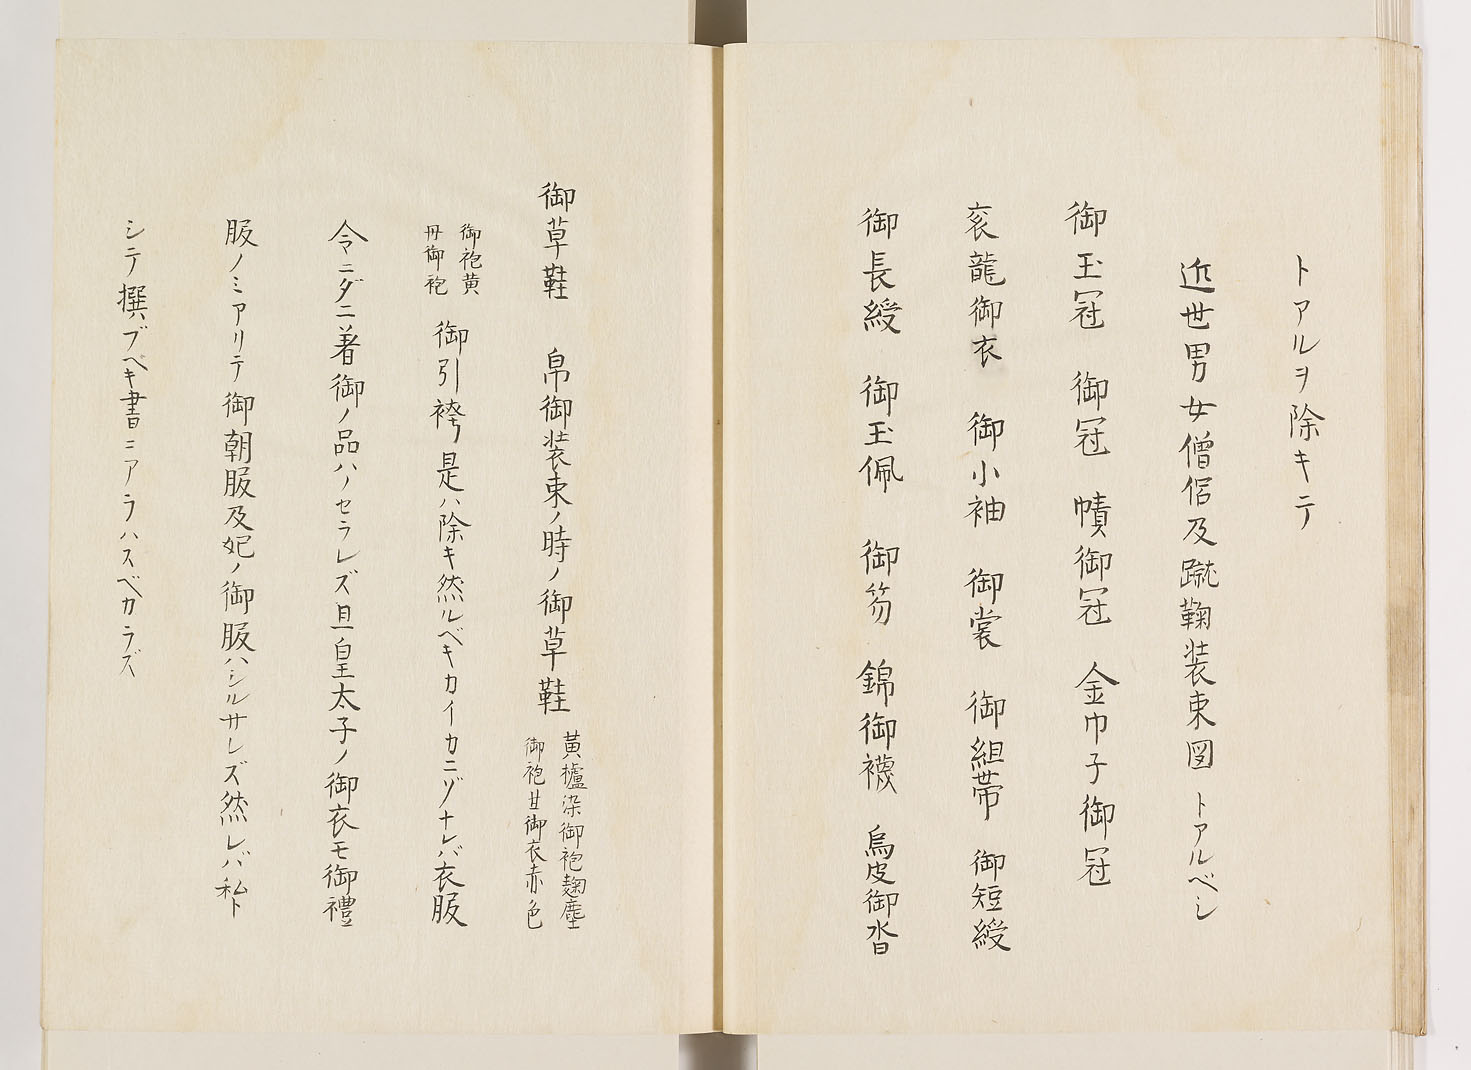 トアルヲ除キテ
近世男女僧侶及蹴鞠装束図 トアルベシ
御玉冠 御冠 幘御冠 金巾子御冠
衮龍御衣 御小袖 御裳 御組帯 御短綬
御長綬 御玉佩 御笏 錦御襪 烏皮御沓
御草鞋 帛御装束ノ時ノ御草鞋 黄櫨染御袍麹塵
御袍廿御衣赤色
御袍黄
丹御袍 御引袴 是ハ除キ然ルベキカイカニゾナレバ衣服
令ニダニ着御ノ品ハノセラレズ且皇太子ノ御衣モ御禮
服ノミアリテ御朝服及妃ノ御服ハシルサレズ然レバ私ト
シテ撰ブベキ書ニアラハスベカラズ